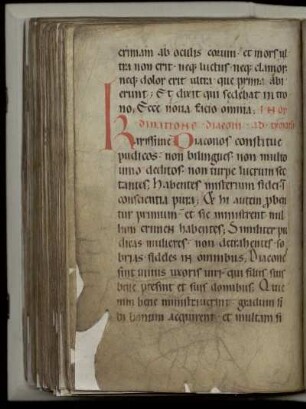 crimam ab oculis eorum et mors ul
tra non erit neq; luctus neq; clamor
neq; dolor erit ultra que prima abi
erunt; Et dixit qui sedebat in tro
no; Ecce noua facio omnia; IN OR
DINATIONE diaconi ad
Karissime Diaconos constitue
pudicos non bilingues non multo
uino deditos non turpe lucrum sec
tantes; Habentes misterium fidei in
conscientia pura; Et hi autem pben
tur primum et sic ministrent nul
lum crimen habentes; Similiter pu
dicas mulieres non detrahentes so
brias fideles in omnibus; Diaconi
sint unius uxoris uiri qui filiis suis
bene presint et suis domibus; Qui e
nim bene ministruerint gradum si
bi bonum acquirent et multam fi